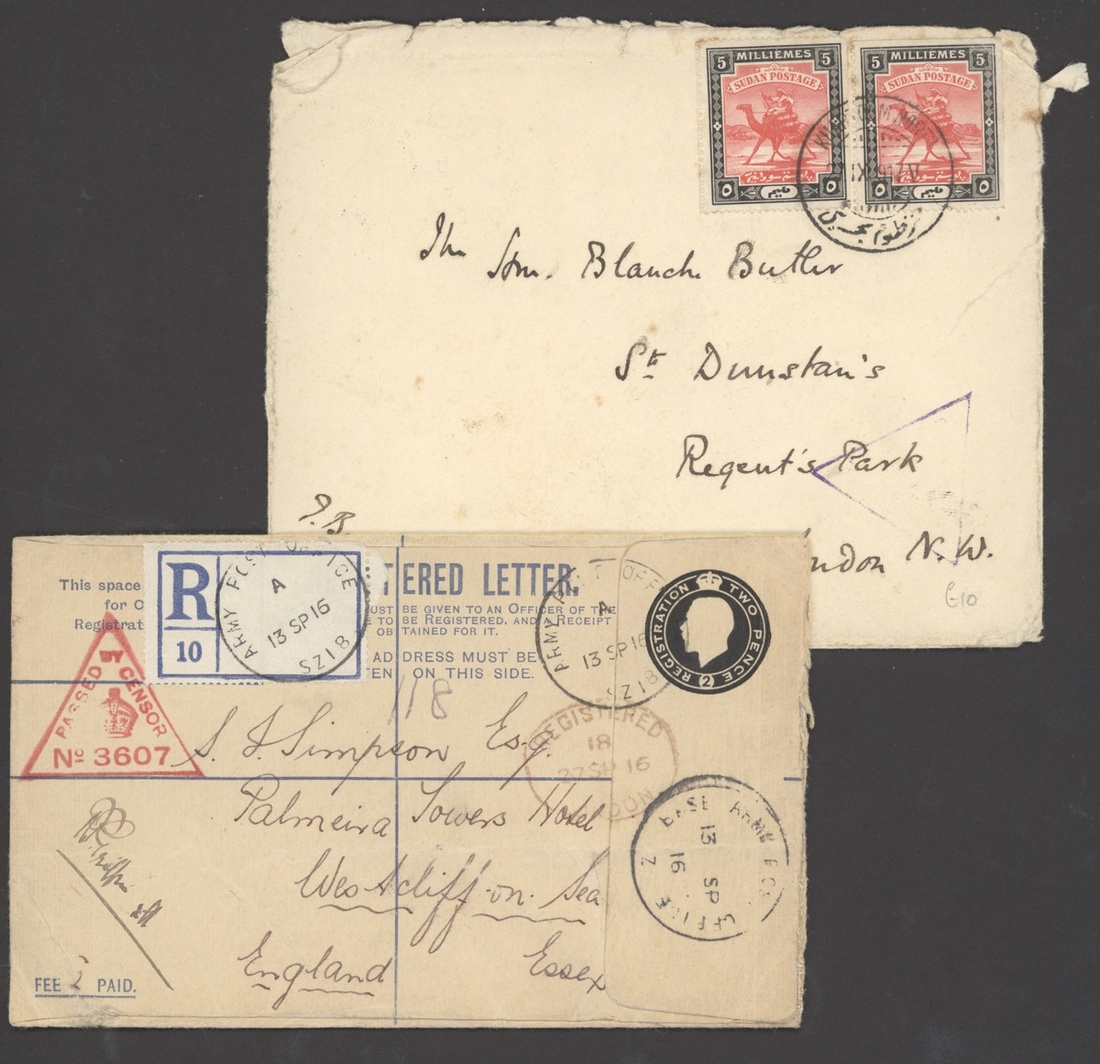 5 MILLIEMES 5
SUDAN POSTAGE
٥ مليم ٥
5 MILLIEMES 5
SUDAN POSTAGE
٥ مليم ٥
The Hon. Blanche Butler
St Dunstan's
Regent's Park
ndon N.W.
P.B.
G10
This space
for O
Registrat
R
10
ARMY POST OFFICE
A
13 SP 16
SZ18
TERED LETTER.
UST BE GIVEN TO AN OFFICER OF THE
TO BE REGISTERED, AND A RECEIPT
OBTAINED FOR IT.
ADDRESS MUST BE
TEN ON THIS SIDE.
ARMY POST OFF
A
13 SP 16
SZ18
REGISTRATION TWO PENCE
2
118
PASSED BY CENSOR
No 3607
REGISTERED
18
27 SP 16
LONDON
S. J. Simpson Esq.
Palmeira Towers Hotel
Westcliff-on-Sea
England Essex
BASE ARMY POST OFFICE Z
13 SP 16
FEE 2 PAID.